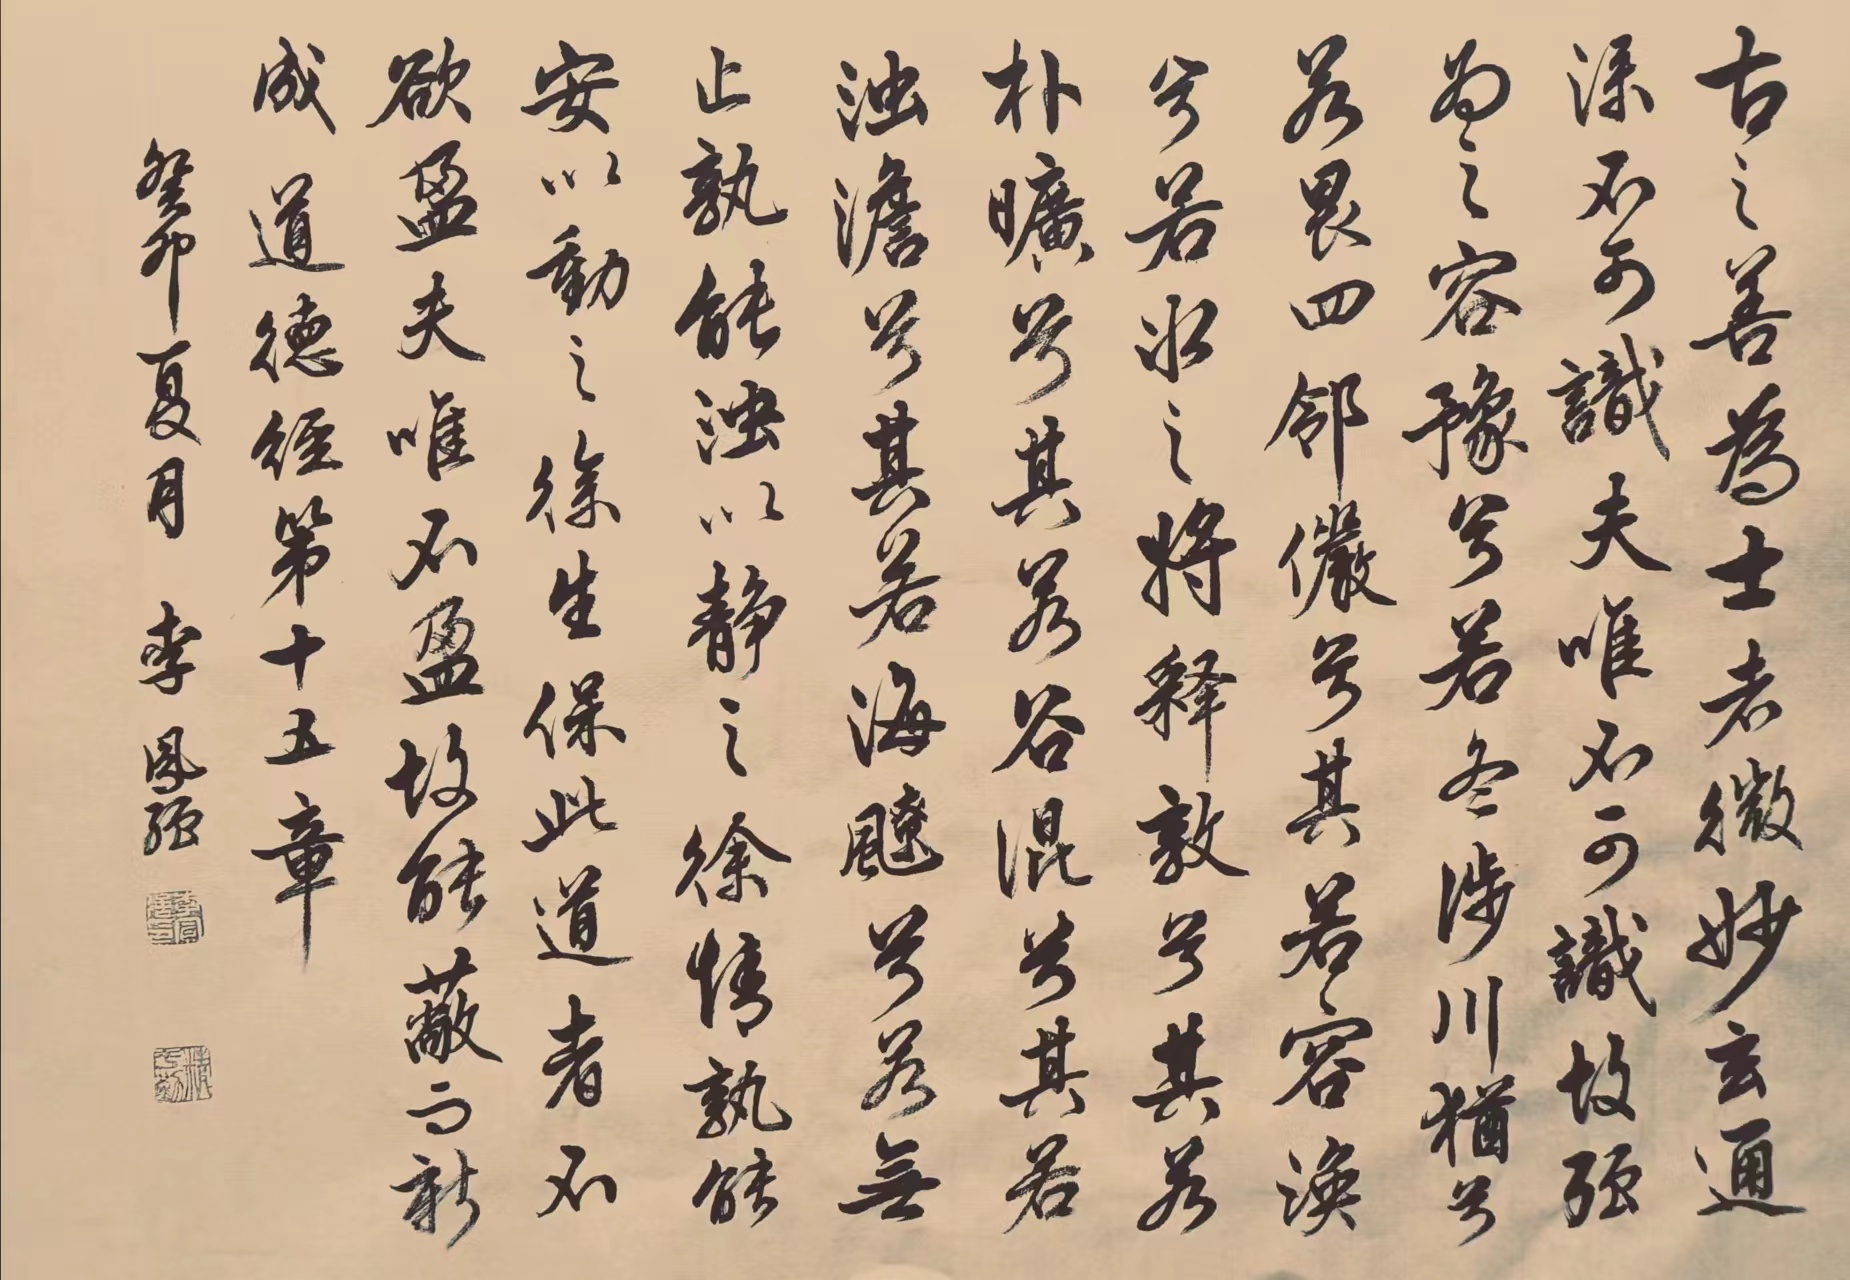 古之善為士者微妙玄通
深不可識夫唯不可識故强
為之容豫兮若冬涉川猶兮
若畏四邻儼兮其若容涣
兮若冰之将释敦兮其若
朴曠兮其若谷混兮其若
浊澹兮其若海飂兮若無
止孰能浊以静之徐情孰能
安以動之徐生保此道者不
欲盈夫唯不盈故能蔽而新
成 道德经第十五章
癸卯夏月 李凤强